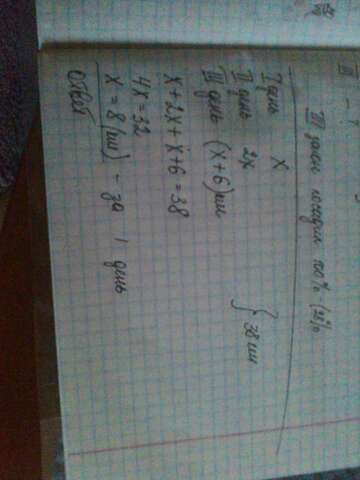 III
III закон
100%
I день x
II день 2x } 38 км
III день (x+6) км
x+2x+x+6=38
4x=32
x=8(км) - за 1 день
Ответ